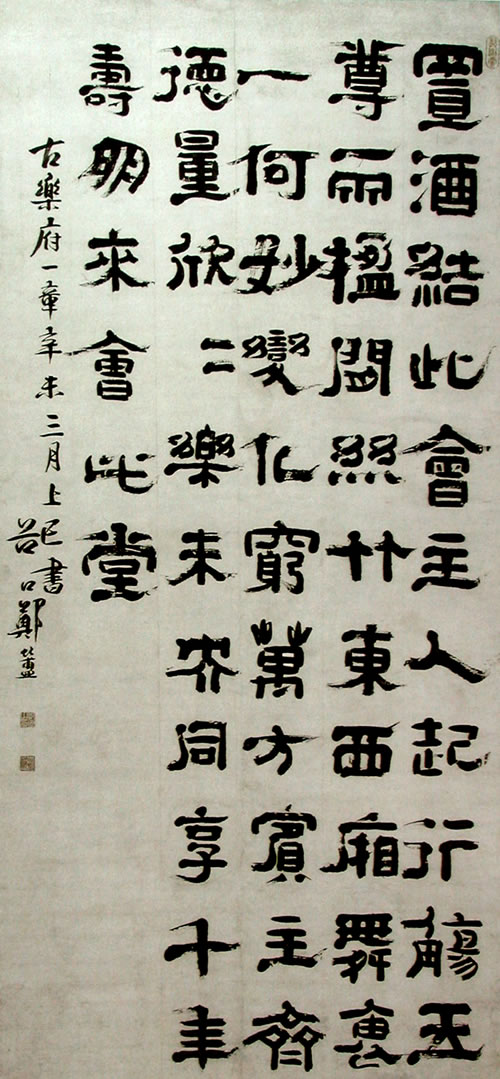 置酒結此會主人起行觴玉
尊兩楹間絲竹東西廂舞袖
一何妙變化窮萬方賓主齊
德量欣二樂未央同享千年
壽朋來會此堂
古樂府一章辛未三月上巳書
谷口鄭簠